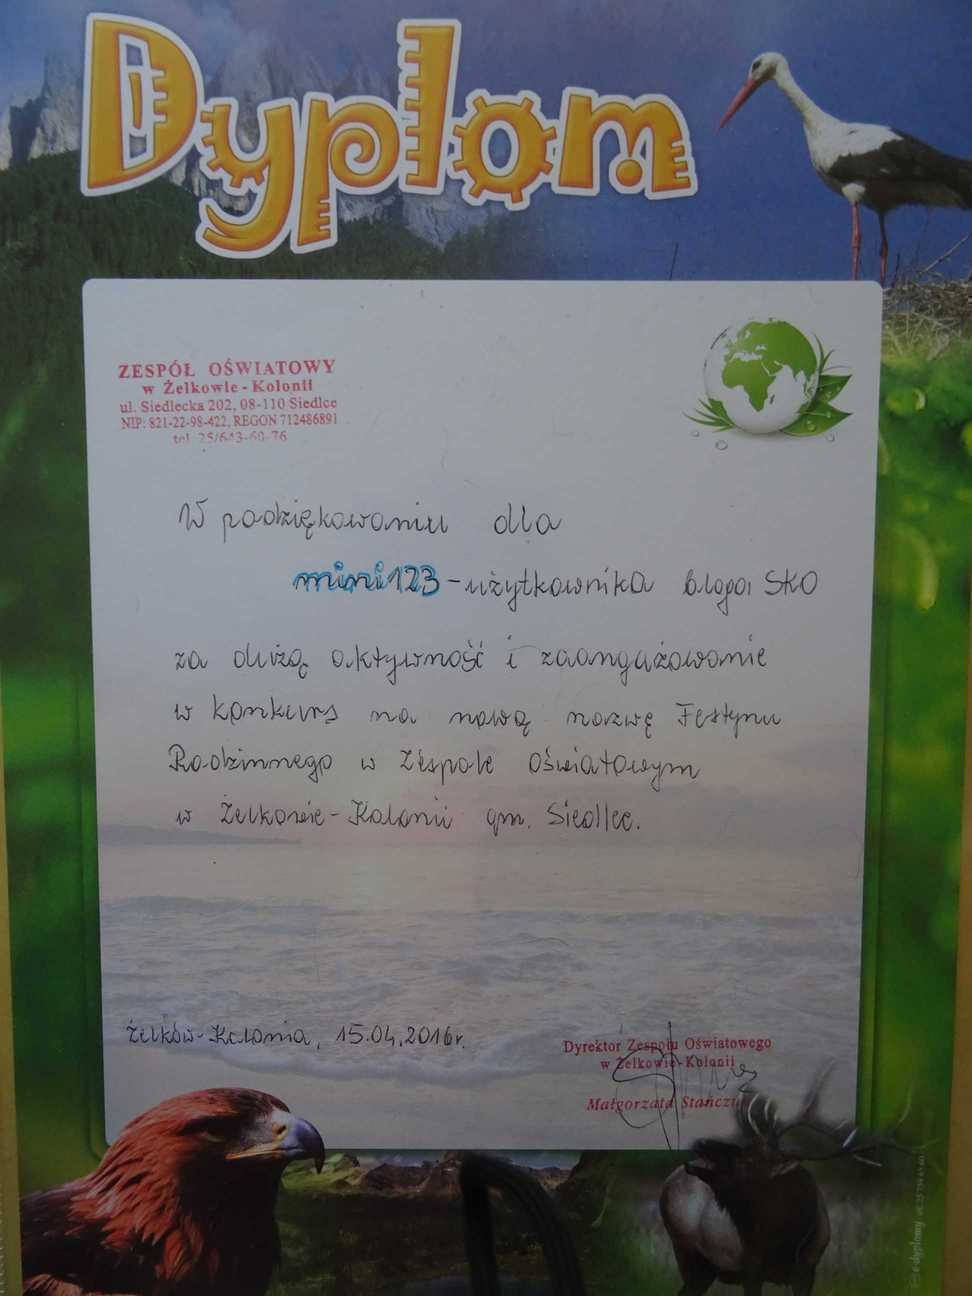 Dyplom
ZESPÓŁ OŚWIATOWY
w Żelkowie - Kolonii
ul. Siedlecka 202, 08-110 Siedlce
NIP: 821-22-98-422, REGON 712486891
tel. 25/643-60-76
W podziękowaniu dla
mini123 - użytkownika bloga SKO
za dużą aktywność i zaangażowanie
w konkurs na nową nazwę Festynu
Rodzinnego w Zespole Oświatowym
w Żelkowie-Kolonii gm. Siedlce.
Żelków-Kolonia, 15.04.2016r.
Dyrektor Zespołu Oświatowego
w Żelkowie-Kolonii
Małgorzata